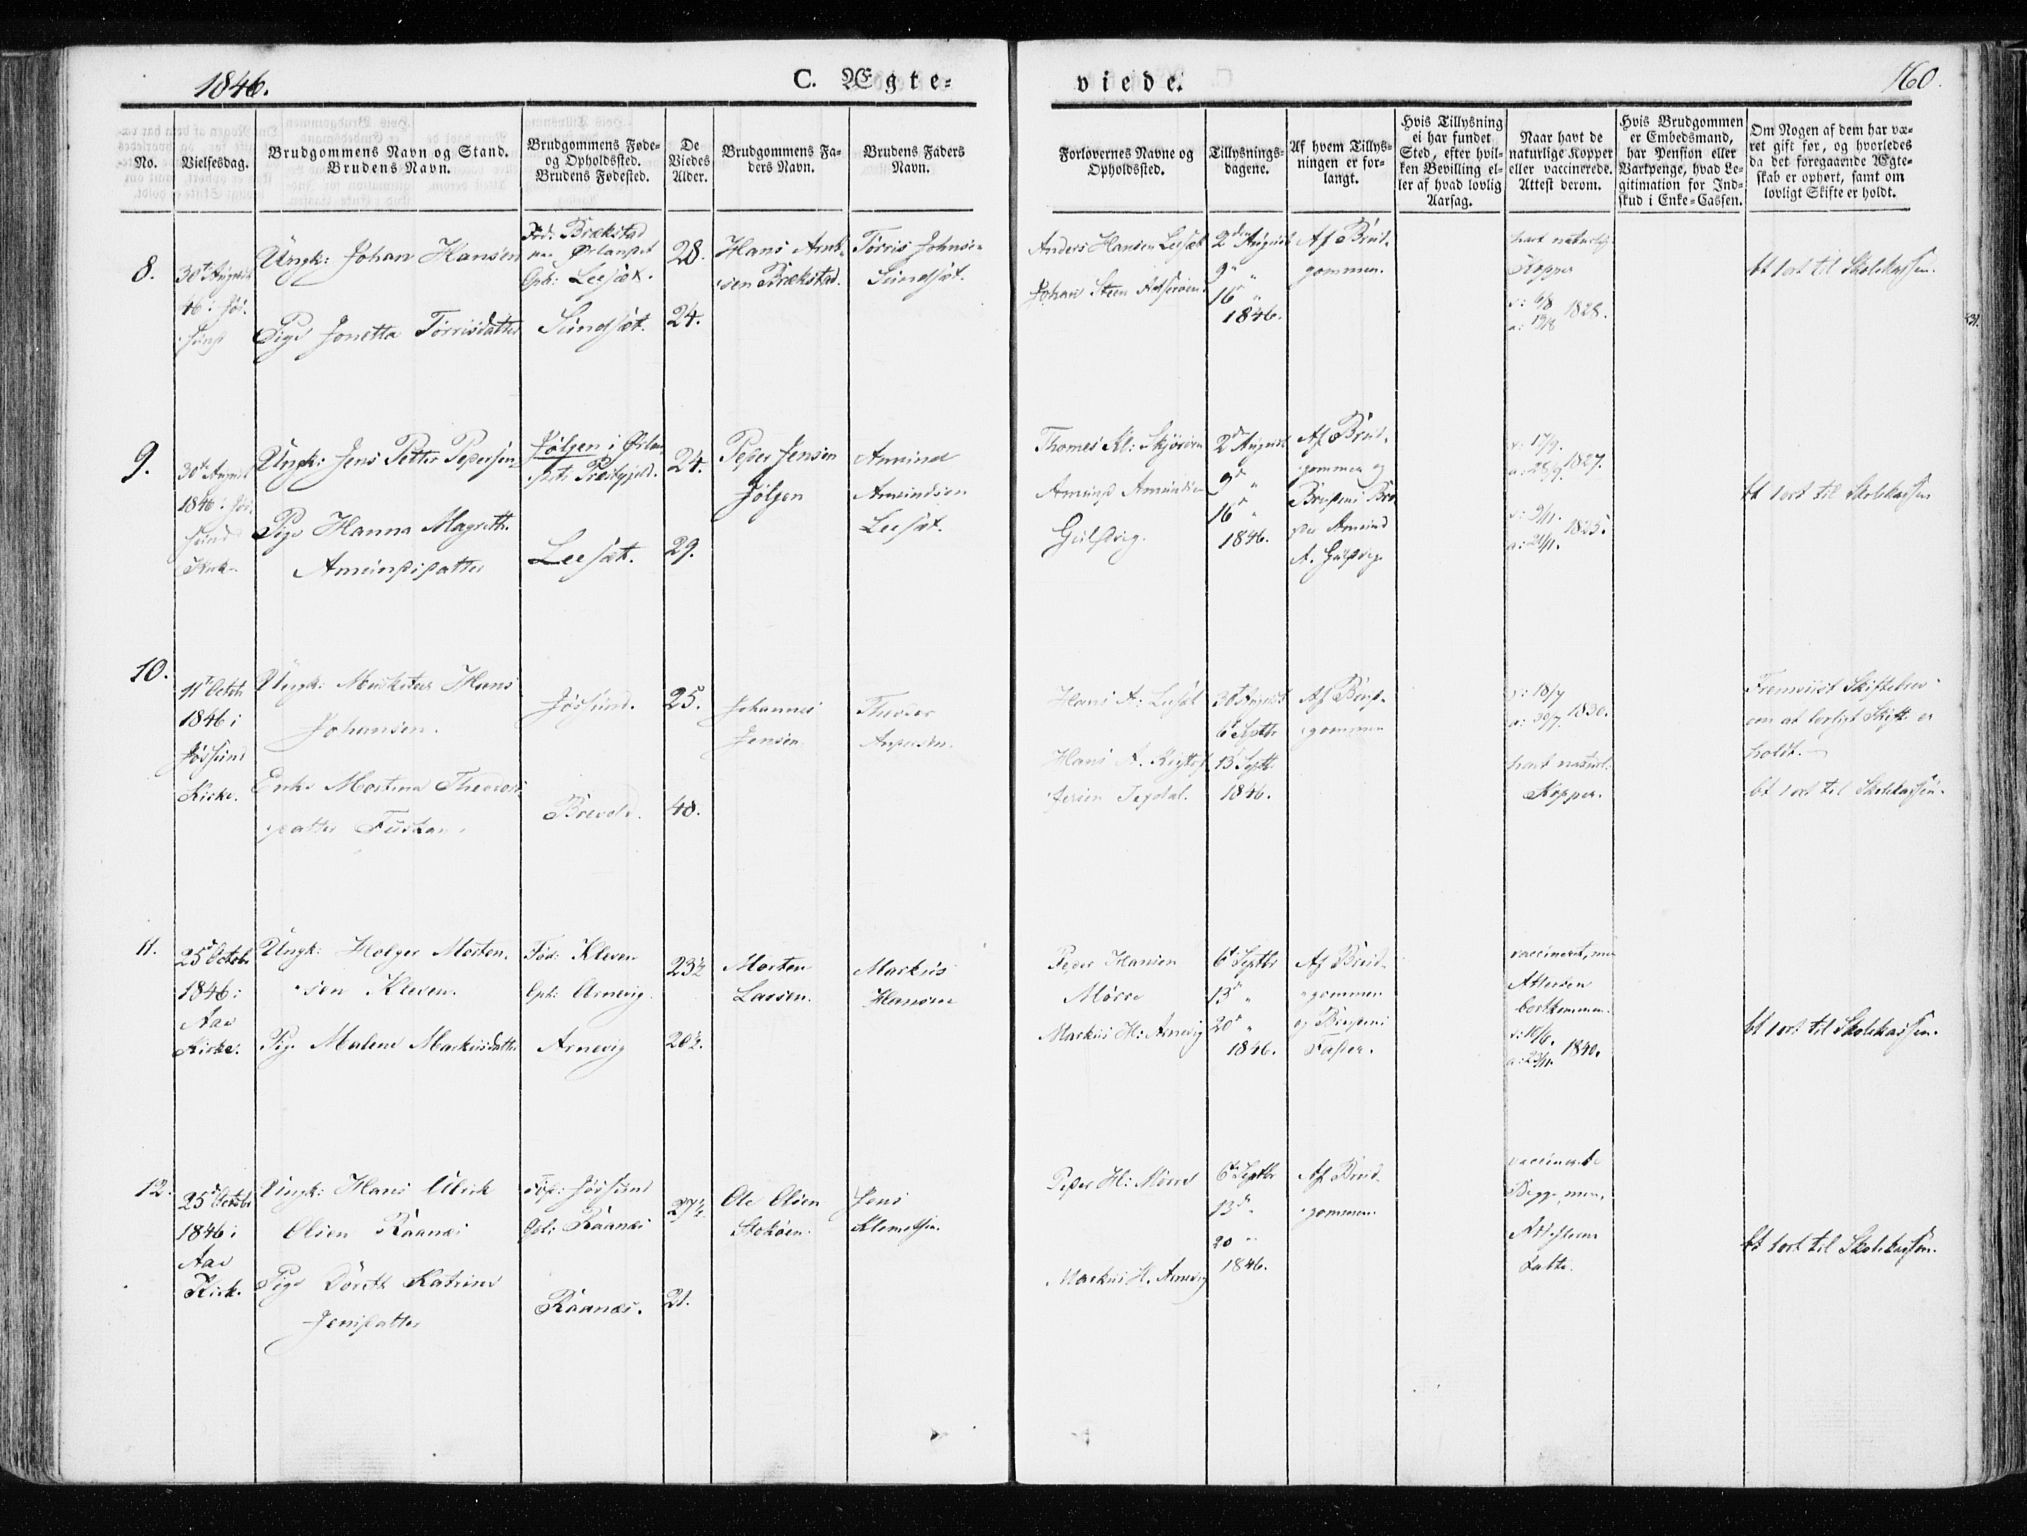 1846.
C. Ægte=
viede.
160.
No.
Vielsesdag.
Brudgommens Navn og Stand.
Brudens Navn.
Brudgommens Føde=
og Opholdssted.
Brudens Fødested.
De
Viedes
Alder.
Brudgommens Fa=
ders Navn.
Brudens Faders
Navn.
Forlovernes Navne og
Opholdssted.
Tillysnings=
dagene.
Af hvem Tillys=
ningen er for=
langt.
Hvis Tillysning
ei har fundet
Sted, efter hvil=
ken Bevilling el=
ler af hvad lovlig
Aarsag.
Naar havt de
naturlige Kopper
eller vaccinerede.
Attest derom.
Hvis Brudgommen
er Embedsmand,
har Pension eller
Vartpenge, hvad Le=
gitimation for Ind=
skud i Enke=Cassen.
Om Nogen af dem har væ=
ret gift før, og hvorledes
da det foregaaende Ægte=
skab er ophørt, samt om
lovligt Skifte er holdt.
8.
30te August
46 i Jøs-
sund
Ungk: Johan Hansen
Pige Jonetta Tørrisdatter
Fød: Brækstad
Oph: Leesæt.
Sundsæt.
28.
24.
Hans Arnt-
sen Brækstad.
Tørris Johnsen
Sundsæt.
Anders Hansen Leesæt
Johan Steen
2den August
9 "
16 "
1846.
Af Brud-
gommen.
havt naturlig
Kopper
v: 6/8
a: 13/8 1828.
bt 1 ort til Skolekassen.
9.
30te August
1846 i Jøs-
sund
Kirke
Ungk: Jens Petter Pedersen
Pige Hanna Magreth.
Amundsdatter
Jølgen i Ørlan-
dets Præstgjeld.
Leesæt.
24.
29.
Peder Jensen
Jølgen
Amund
Amundsen
Leesæt.
Thomes Kl: Skjørøen
Amund Amundsen
Gulsvig.
2d August
9d "
16 "
1846.
Af Brud-
gommen og
Brudens Bro-
der Amund
A. Gulsvig.
v: 17/9.
a: 28/9 1827.
v: 9/11.
a: 21/11. 1825.
bt 1 ort til Skolekassen
10.
11te Octob
1846 i
Jøssund
Kirke.
Ungk: Musketeer Hans
Johansen.
Enke Martina Theodors-
datter
Jøssund.
Brevold.
25.
40.
Johannes
Jensen.
Theodor
Andersen.
Hans A: Leesæt
Hans A.
Jensen Tegdal.
30t August
6t Septbr
13 Septbr
1846.
Af Brud-
gommen
v: 18/7
a: 30/7 1830.
havt naturl.
Kopper.
Fremviist Skiftebrev
om at lovligt Skifte er
holdt.
bt 1 ort til Skolekassen.
11.
25de Octobr
1846 i
Aae
Kirke.
Ungk: Holger Morten-
sen Kleven.
Pige Malene Markusdatter
Fød: Kleven
Oph: Arnevig.
Arnevig
23½
20½.
Morten
Larsen.
Markus
Hansen
Peder Hansen
Mørre
Markus H: Arnevig
6t Septbr
13d "
20d "
1846.
Af Brud-
gommen
og Brudens
Fader.
vaccineret, men
Attesten
bortkommen.
v: 16/6.
a: 23/11. 1840.
bt 1 ort til Skolekassen.
12.
25d Octobr
1846 i
Aae
Kirk.
Ungk: Hans Ulrick
Olsen Raanæs
Pige Doreth Katrine
Jensdatter
Fød: Jøssund
Oph: Raanæs
Raanæs.
27½
21.
Ole Olsen
Stokøen.
Jens
Klemetsen.
Peder H: Mørre
Markus H. Arnevig
6te Septbr
13d "
20 "
1846.
Af Brud-
gommen.
vaccinerede
Begge, men
Attesterne
tabte.
bt 1 ort til Skolekassen.